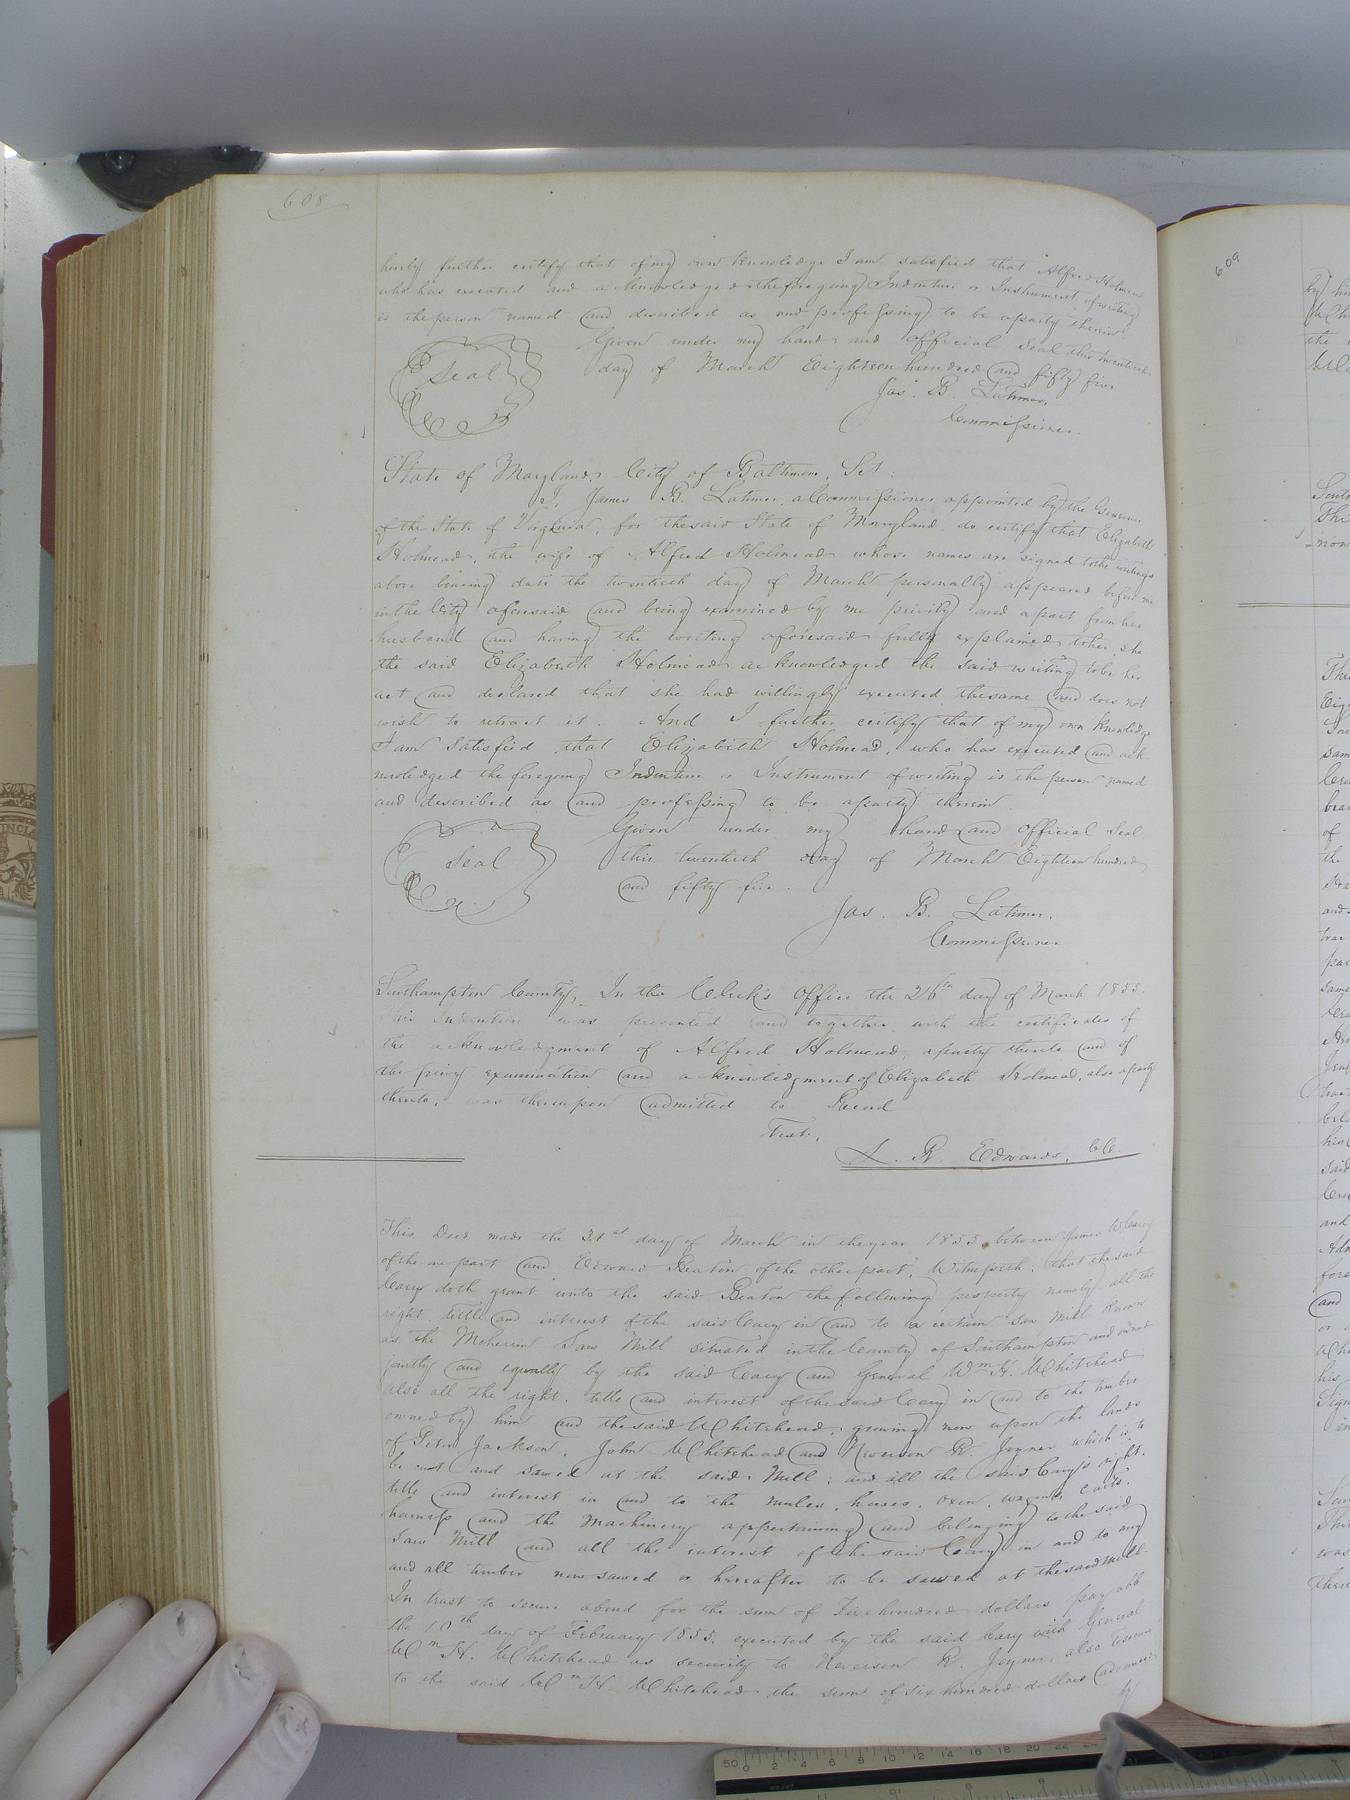 608
hereby further certify that of my own knowledge I am satisfied that Alfred Holmead
who has executed and acknowledged the foregoing Indenture or Instrument of writing
is the person named and described as and professing to be a party therein
Given under my hand and official Seal this twentieth
day of March Eighteen hundred and fifty five
Seal
Jas. B. Latimer,
Commissioner.
State of Maryland, City of Baltimore, Sct:
I, James B. Latimer, a Commissioner appointed by the Governor
of the State of Virginia, for the said State of Maryland, do certify that Elizabeth
Holmead, the wife of Alfred Holmead whose names are signed to the writings
above bearing date the twentieth day of March personally appeared before me
in the City aforesaid and being examined by me privily and apart from her
husband and having the writing aforesaid fully explained to her, she
the said Elizabeth Holmead acknowledged the said writing to be her
act and declared that she had willingly executed the same and does not
wish to retract it. And I further certify that of my own knowledge
I am satisfied that Elizabeth Holmead, who has executed and ack
nowledged the foregoing Indenture or Instrument of writing is the person named
and described as and professing to be a party therein
Given under my hand and official Seal
this twentieth day of March Eighteen hundred
and fifty five.
Seal
Jas. B. Latimer,
Commissioner
Southampton County, In the Clerk's Office the 26th day of March 1855.
This Indenture was presented and together with the certificates of
the acknowledgment of Alfred Holmead, a party thereto and of
the privy examination and acknowledgment of Elizabeth Holmead, also a party
thereto, was thereupon admitted to Record
Test,
L. R. Edwards, CC.
This Deed made the 31st day of March in the year 1855 between James W Cary
of the one part and Edward Beaton of the other part, Witnesseth, that the said
Cary doth grant unto the said Beaton the following property namely all the
right, title and interest of the said Cary in and to a certain Saw Mill known
as the Meherrin Saw Mill situated in the County of Southampton and owned
jointly and equally by the said Cary and General Wm H. Whitehead
also all the right, title and interest of the said Cary in and to the timber
owned by him and the said Whitehead, growing now upon the lands
of Peter Jackson, John Whitehead and Neverson R. Joyner which is to
be cut and sawed at the said Mill; and all the said Cary's right,
title and interest in and to the mules, horses, oxen, wagons, carts,
harness and the Machinery appertaining and belonging to the said
Saw Mill and all the interest of the said Cary in and to any
and all timber now sawed or hereafter to be sawed at the said Mill.
In trust to secure a bond for the sum of Five hundred dollars payable
the 10th day of February 1855, executed by the said Cary with General
Wm H. Whitehead as security to Neverson R. Joyner, also to secure
to the said Wm H Whitehead the sum of six hundred dollars advanced
by
609